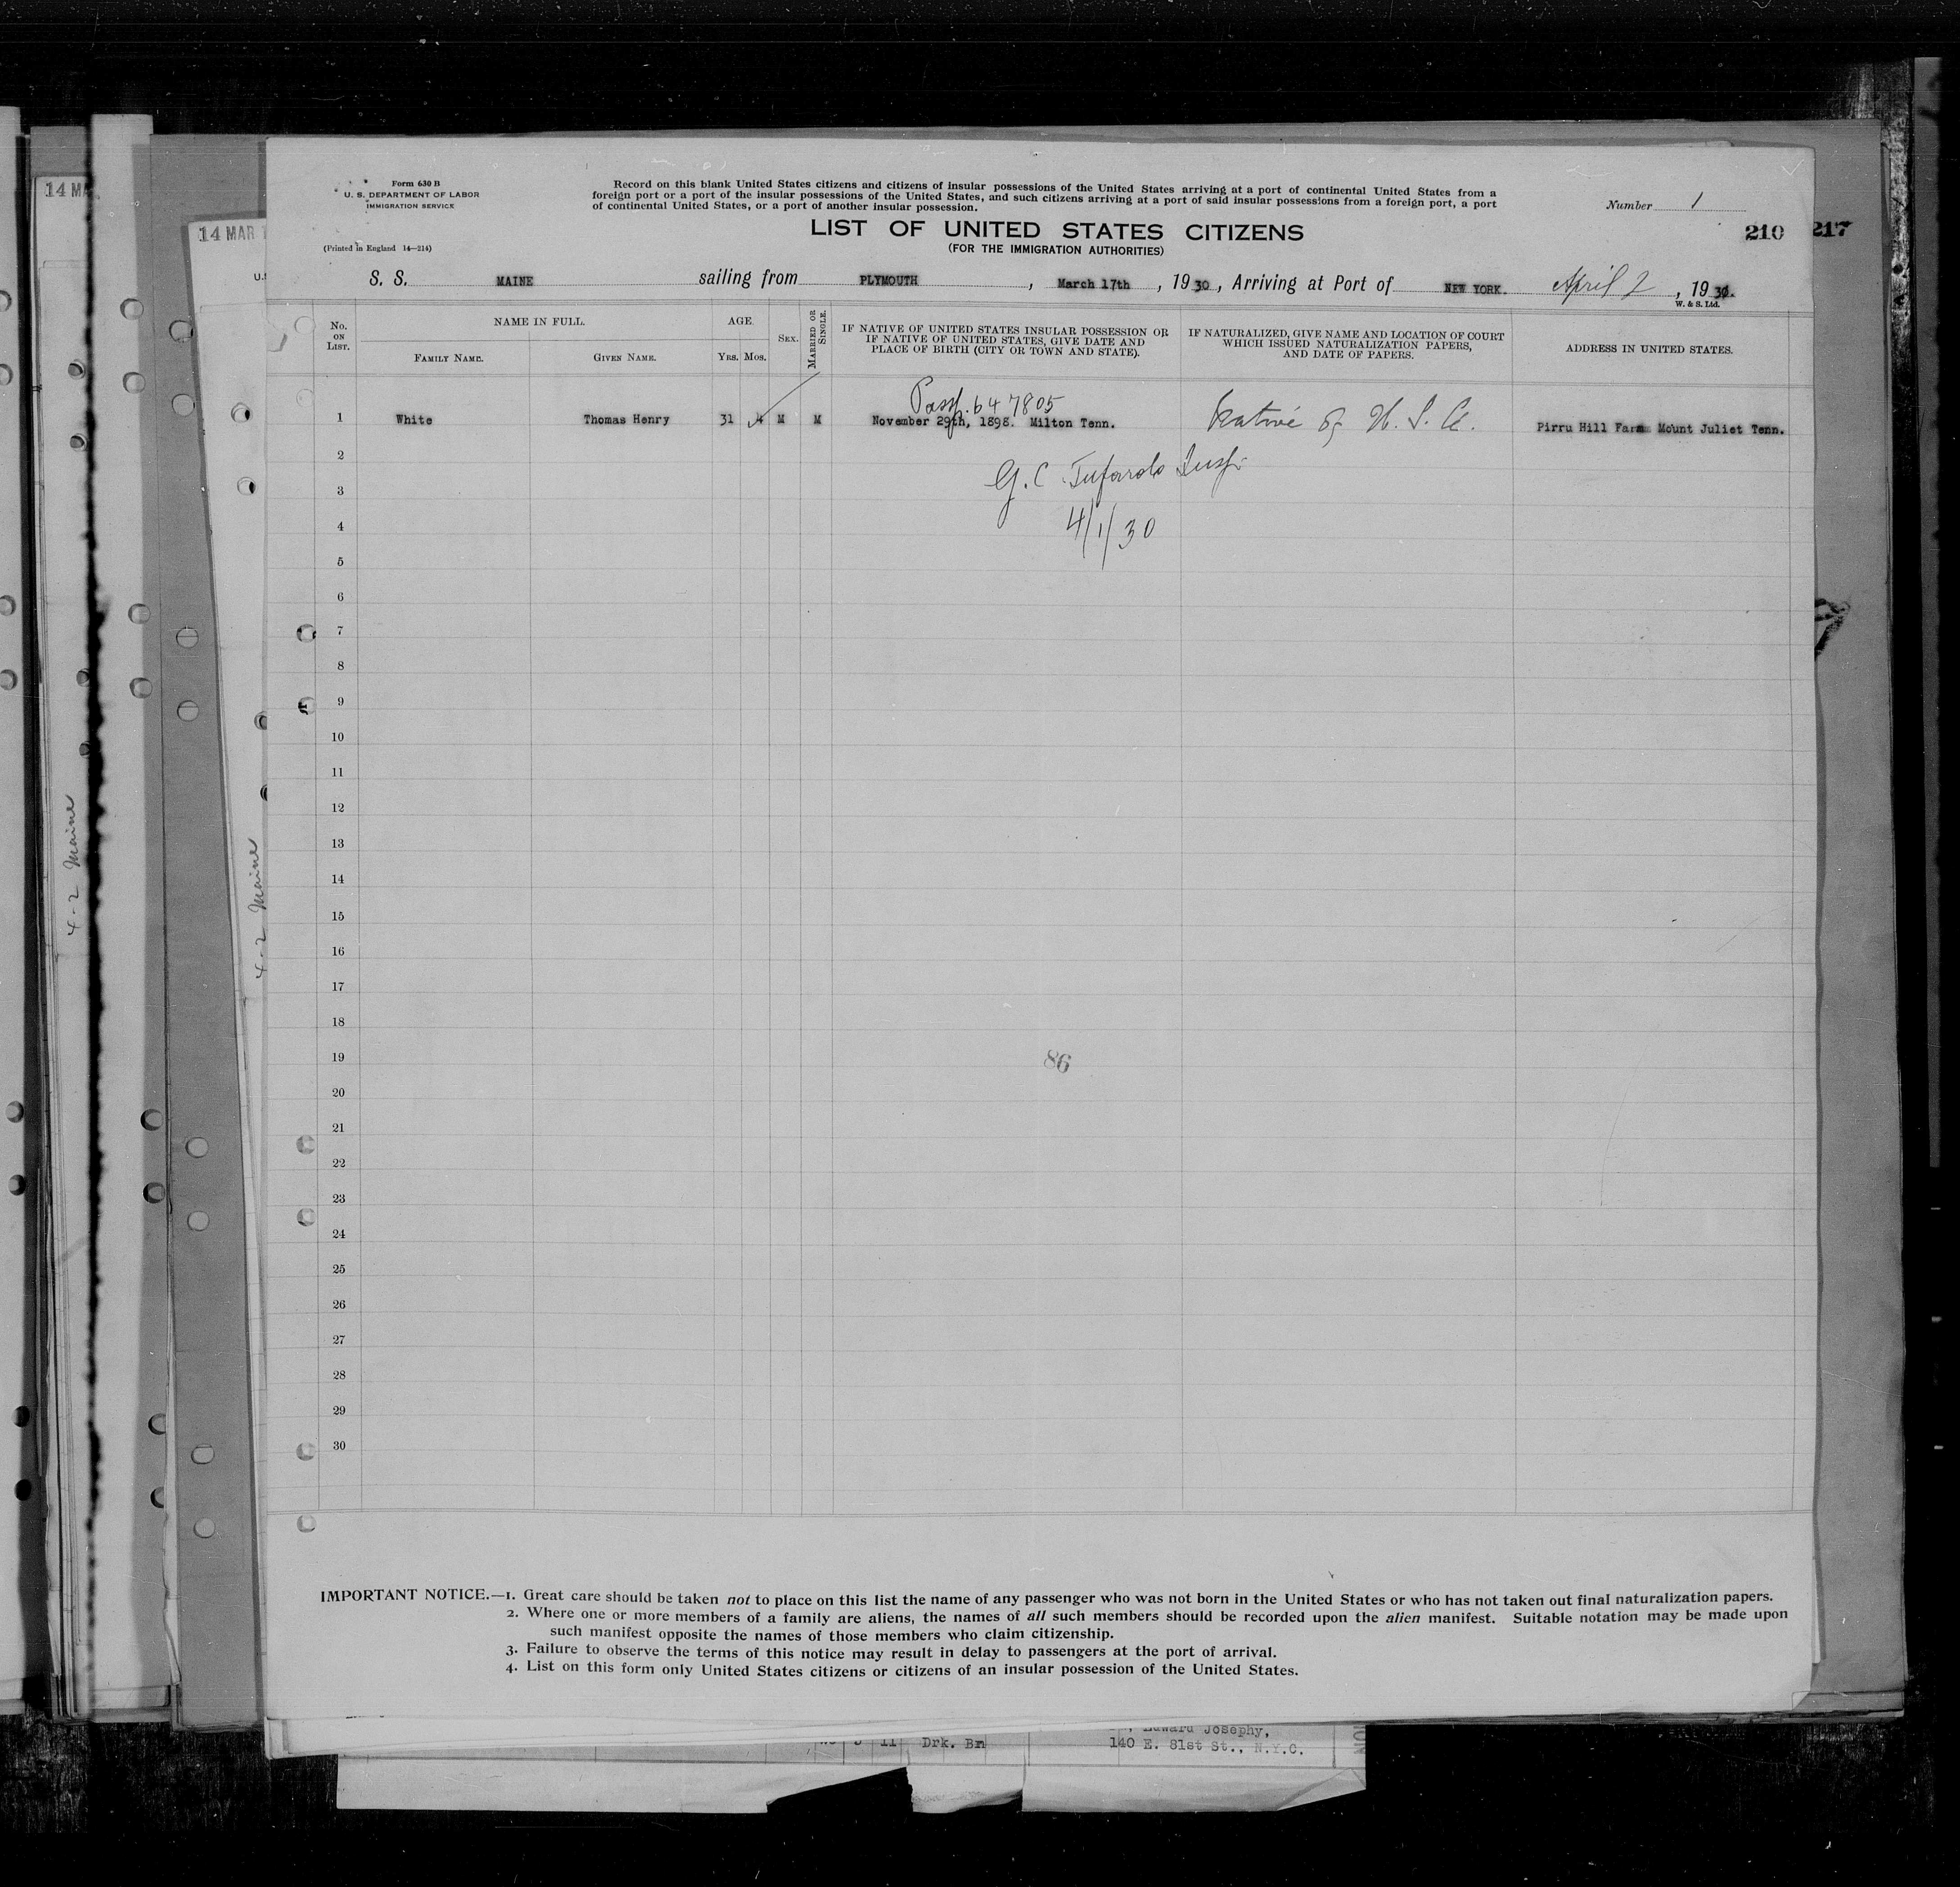 14 MA
14 MAR 1
Form 630 B
U. S. DEPARTMENT OF LABOR
IMMIGRATION SERVICE
(Printed in England 14—214)
Record on this blank United States citizens and citizens of insular possessions of the United States arriving at a port of continental United States from a
foreign port or a port of the insular possessions of the United States, and such citizens arriving at a port of said insular possessions from a foreign port, a port
of continental United States, or a port of another insular possession.
Number 1
LIST OF UNITED STATES CITIZENS
(FOR THE IMMIGRATION AUTHORITIES)
210
217
S. S. MAINE sailing from PLYMOUTH , March 17th , 1930, Arriving at Port of NEW YORK. April 2 , 1930.
W. & S. Ltd.
No. ON LIST.
NAME IN FULL.
FAMILY NAME.
GIVEN NAME.
AGE.
YRS. MOS.
SEX.
MARRIED OR SINGLE.
IF NATIVE OF UNITED STATES INSULAR POSSESSION OR
IF NATIVE OF UNITED STATES, GIVE DATE AND
PLACE OF BIRTH (CITY OR TOWN AND STATE).
IF NATURALIZED, GIVE NAME AND LOCATION OF COURT
WHICH ISSUED NATURALIZATION PAPERS,
AND DATE OF PAPERS.
ADDRESS IN UNITED STATES.
Passp. 647805
1 White Thomas Henry 31 4 M M November 29th, 1898. Milton Tenn. Native of U. S. A. Pirru Hill Farm Mount Juliet Tenn.
2
G. C. Insp.
3
4 4/1/30
5
6
7
8
9
10
11
12
13
14
15
16
17
18
19 86
20
21
22
23
24
25
26
27
28
29
30
4-2 Maine
4-2 Maine
IMPORTANT NOTICE.—1. Great care should be taken not to place on this list the name of any passenger who was not born in the United States or who has not taken out final naturalization papers.
2. Where one or more members of a family are aliens, the names of all such members should be recorded upon the alien manifest. Suitable notation may be made upon
such manifest opposite the names of those members who claim citizenship.
3. Failure to observe the terms of this notice may result in delay to passengers at the port of arrival.
4. List on this form only United States citizens or citizens of an insular possession of the United States.
Edward Josephy,
5 11 Drk. Bn 140 E. 81st St., N.Y.C.